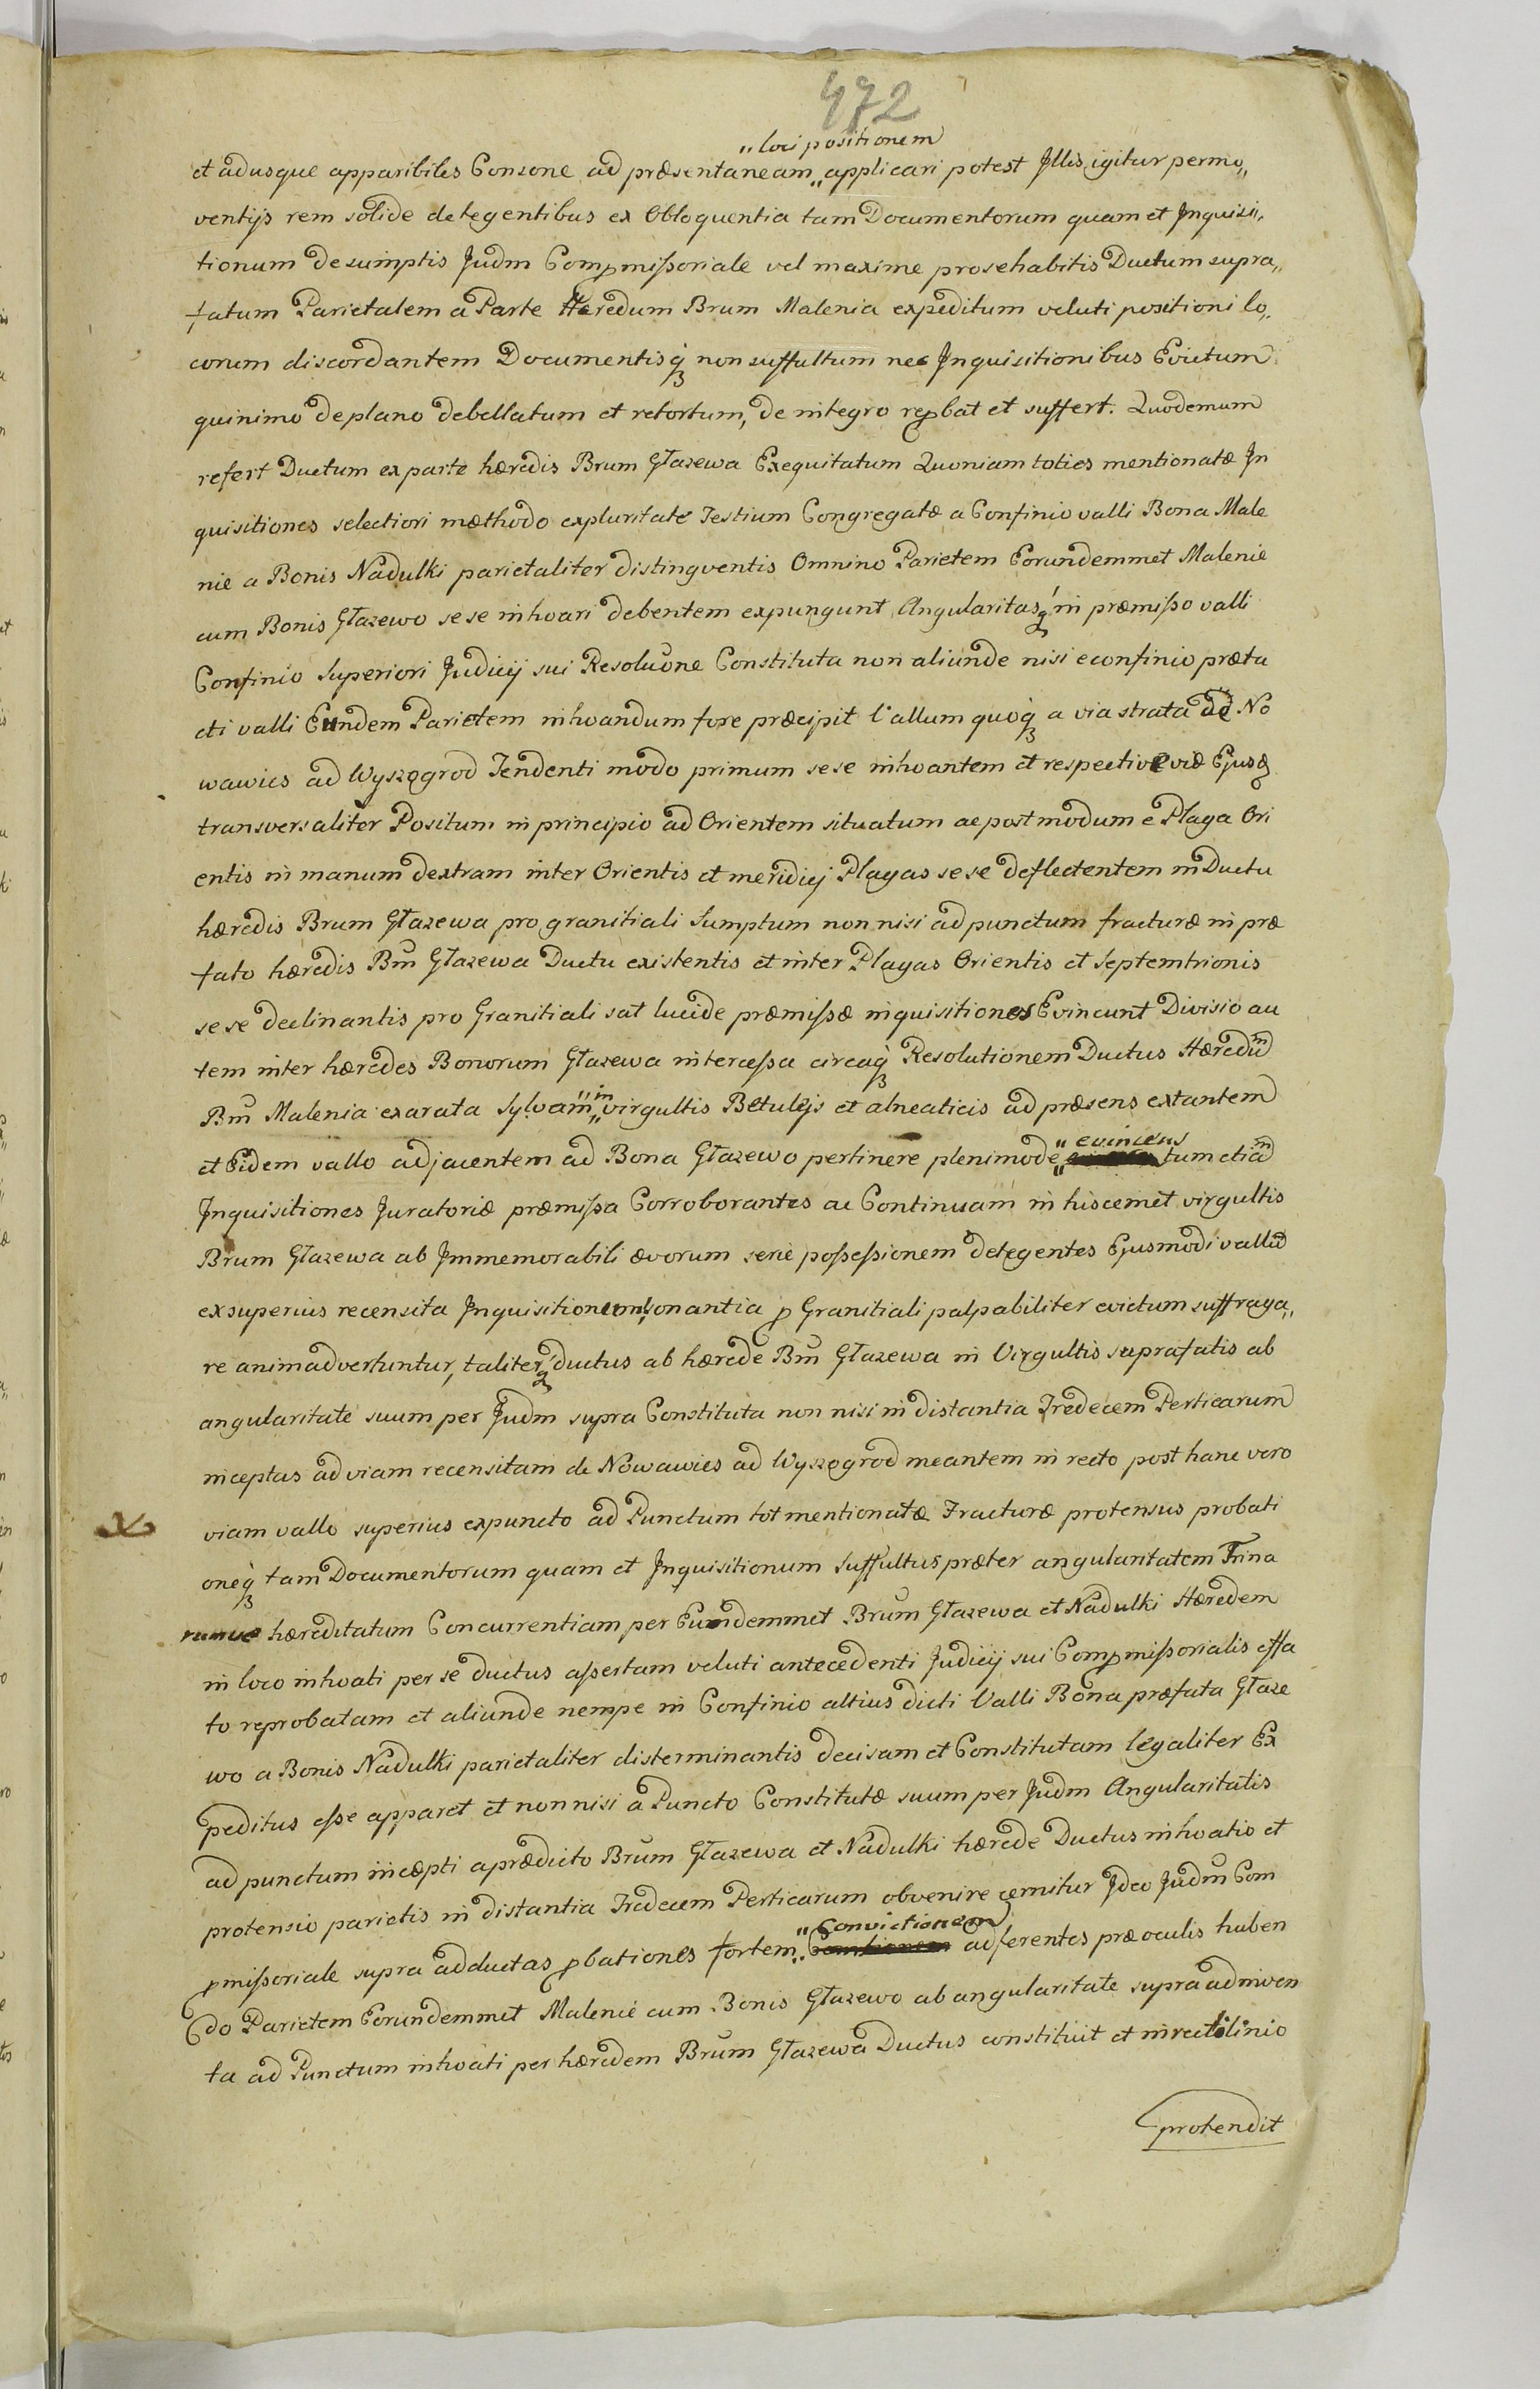 472
„loci positionem
et adusque apparibiles Consone ad præsentaneam„ applicari potest Illis igitur permo„
ventijs rem solide detegentibus ex Obloquentia tam Documentorum quam et Inquisi„
tionum desumptis Judm Compmißoriale vel maxime prosehabitis Ductum supra„
fatum Parietalem a Parte Hæredum Brum Malenia expeditum veluti positioni lo„
corum discordantem Documentisq̀ non suffultum nec Inquisitionibus Evictum
quinimo deplano debellatum et retortum, de integro repbat et suffert. Quodemum
refert Ductum ex parte hæredis Brum Głazewa Exequitatum Quoniam toties mentionatæ In
quisitiones selectiori mæthodo expluritate Testium Congregatæ a Confinio valli Bona Male
nie a Bonis Nadulki parietaliter distingventis Omnino Parietem Eorundemmet Malenie
cum Bonis Głazewo sese inhoari debentem expungunt Angularitasq́ in præmißo valli
Confinio Superiori Judicij sui Resolu͠one Constituta non aliunde nisi e confinio præta
cti valli Eundem Parietem inhoandum fore præcipit Vallum quoq̀ a via strata de No
wawies ad Wyszogrod Tendenti modo primum sese inhoantem et respective viæ Ejusd
transversaliter Positum in principio ad Orientem situatum ac postmodum e Plaga Ori
entis in manum dextram inter Orientis et meridiej Plagas sese deflectentem in Ductu
hæredis Brum Głazewa pro granitiali Sumptum non nisi ad punctum fracturæ in præ
fato hæredis Bm̃ Głazewa Ductu existentis et inter Plagas Orientis et Septemtrionis
sese declinantis pro Granitiali sat lucide præmißæ inquisitiones Evincunt Divisio au
tem inter hæredes Bonorum Głazewa interceßa circaq̀ Resolutionem Ductus Hæredum
Bm̃ Malenia exarata Sylvam „in„ virgultis Betulejs et alneaticis ad præsens extantem
et Eidem vallo adjacentem ad Bona Głazewo pertinere plenimode „evincens„ tum etiam
Inquisitiones Juratoriæ præmißa Corroborantes ac Continuam in hiscemet virgultis
Brum Głazewa ab Immemorabili ævorum serie poßeßionem detegentes Ejusmodi vallum
exsuperius recensita Inquisitionum sonantia p Granitiali palpabiliter evictum suffraga„
re animadvertuntur, taliterq́ ductus ab hærede Bm̃ Głazewa in Virgultis suprafatis ab
angularitate suum per Judm supra Constituta non nisi in distantia Tredecem Perticarum
inceptas ad viam recensitam de Nowawies ad Wyszogrod meantem in recto post hanc vero
viam vallo superius expuncto ad Punctum tot mentionatæ Fracturæ protensus probati
oneq̀ tam Documentorum quam et Inquisitionum Suffultus præter angularitatem Trina
rumve hæreditatum Concurrentiam per Eundemmet Brum Głazewa et Nadulki Hæredem
in loco inhoati per se ductus aßertam veluti antecedenti Judicij sui Compmißorialis effa
to reprobatam et aliunde nempe in Confinio altius dicti Valli Bona præfata Głaze
wo a Bonis Nadulki parietaliter disterminantis decisam et Constitutam legaliter Ex
peditus eße apparet et non nisi a Puncto Constitutæ suum per Judm Angularitatis
ad punctum incæpti a prædicto Brum Głazewa et Nadulki hærede Ductus inhoatio et
protensio parietis in distantia Tredecem Perticarum obvenire cernitur Ideo Judm Com
pmißoriale supra adductas pbationes fortem „Convictionem adferentes præoculis haben
do Parietem Eorundemmet Malenie cum Bonis Głazewo ab angularitate supra adinven
ta ad Punctum inhoati per hæredem Brum Głazewa Ductus constituit et in rectilinio
protendit